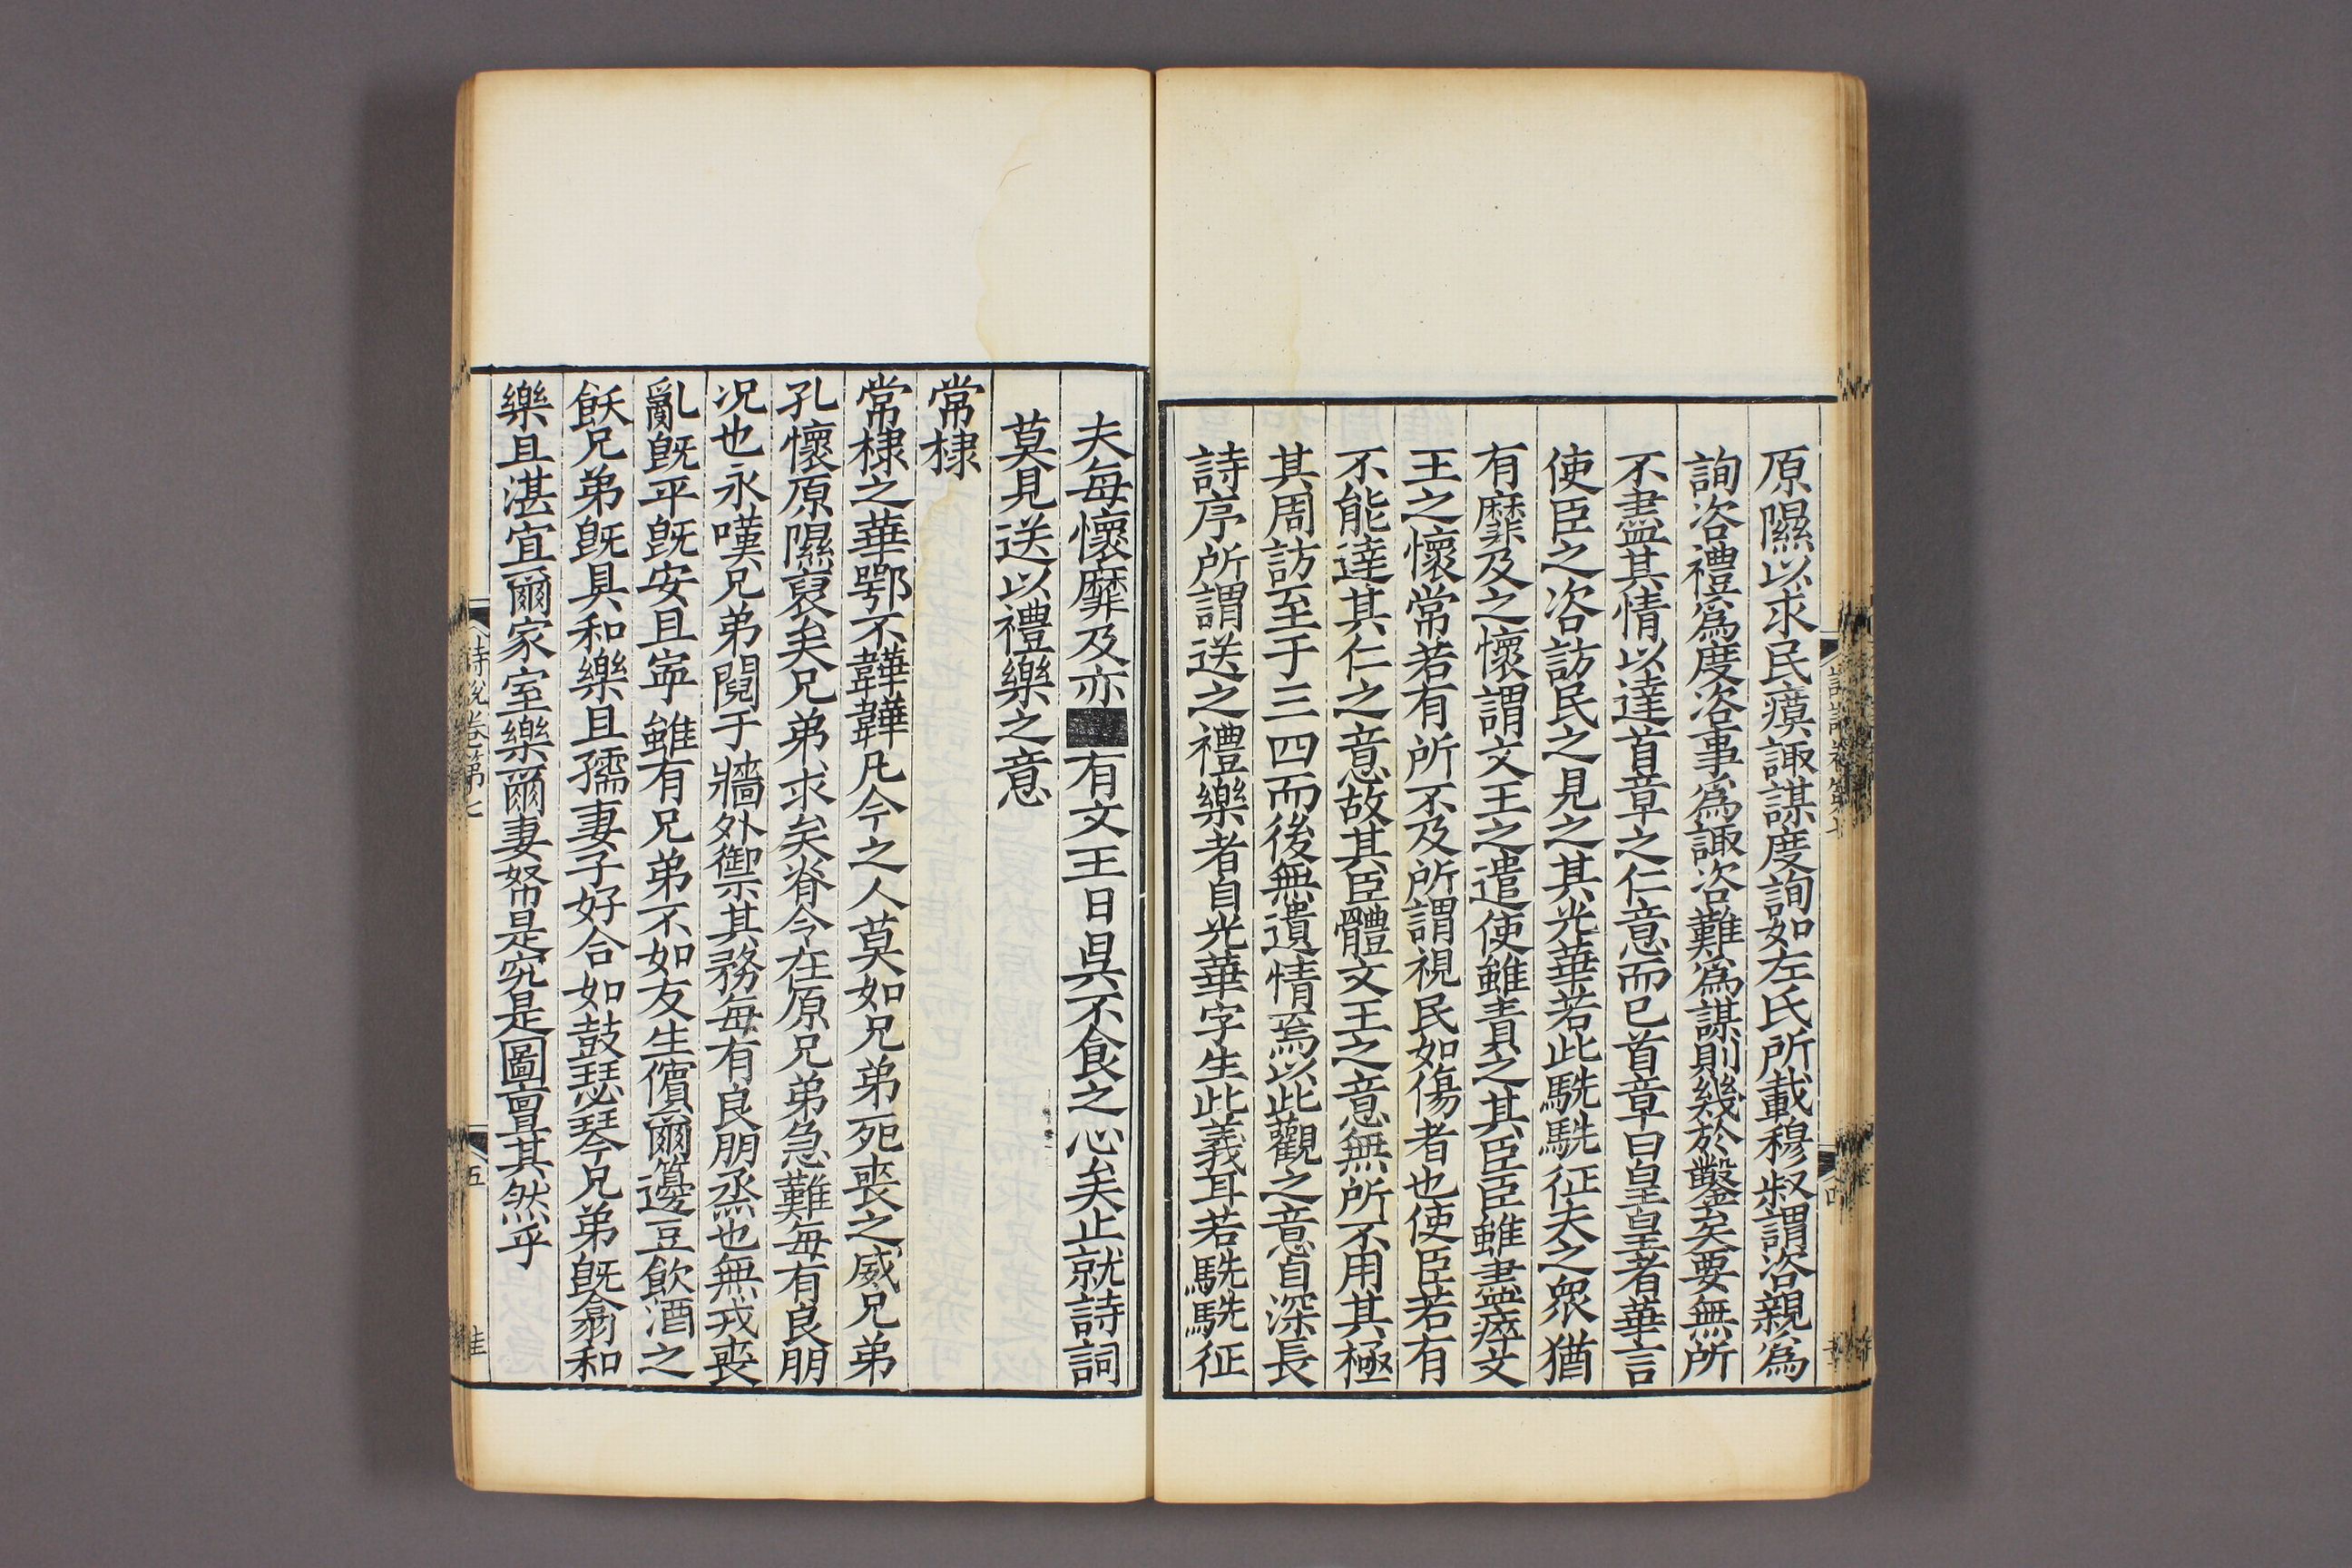 原隰以求民瘼諏謀度詢如左氏所載穆叔謂咨親爲
詢咨禮爲度咨事爲諏咨難爲謀則幾於鑿矣要無所
不盡其情以達首章之仁意而已首章曰皇皇者華言
使臣之咨訪民之見之其光華若此駪駪征夫之衆猶
有靡及之懷謂文王之遣使雖責之其臣臣雖盡瘁文
王之懷常若有所不及所謂視民如傷者也使臣若有
不能達其仁之意故其臣體文王之意無所不用其極
其周訪至于三四而後無遺情焉以此觀之意自深長
詩序所謂送之禮樂者自光華字生此義耳若駪駪征
夫每懷靡及亦■有文王日昃不食之心矣止就詩詞
莫見送以禮樂之意
常棣
常棣之華鄂不韡韡凡今之人莫如兄弟死喪之威兄弟
孔懷原隰裒矣兄弟求矣脊令在原兄弟急難每有良朋
况也永嘆兄弟鬩于牆外禦其務每有良朋烝也無戎喪
亂旣平旣安且寧雖有兄弟不如友生儐爾籩豆飲酒之
飫兄弟旣具和樂且孺妻子好合如鼓瑟琴兄弟旣翕和
樂且湛宜爾家室樂爾妻帑是究是圖亶其然乎
詩說卷第七
五